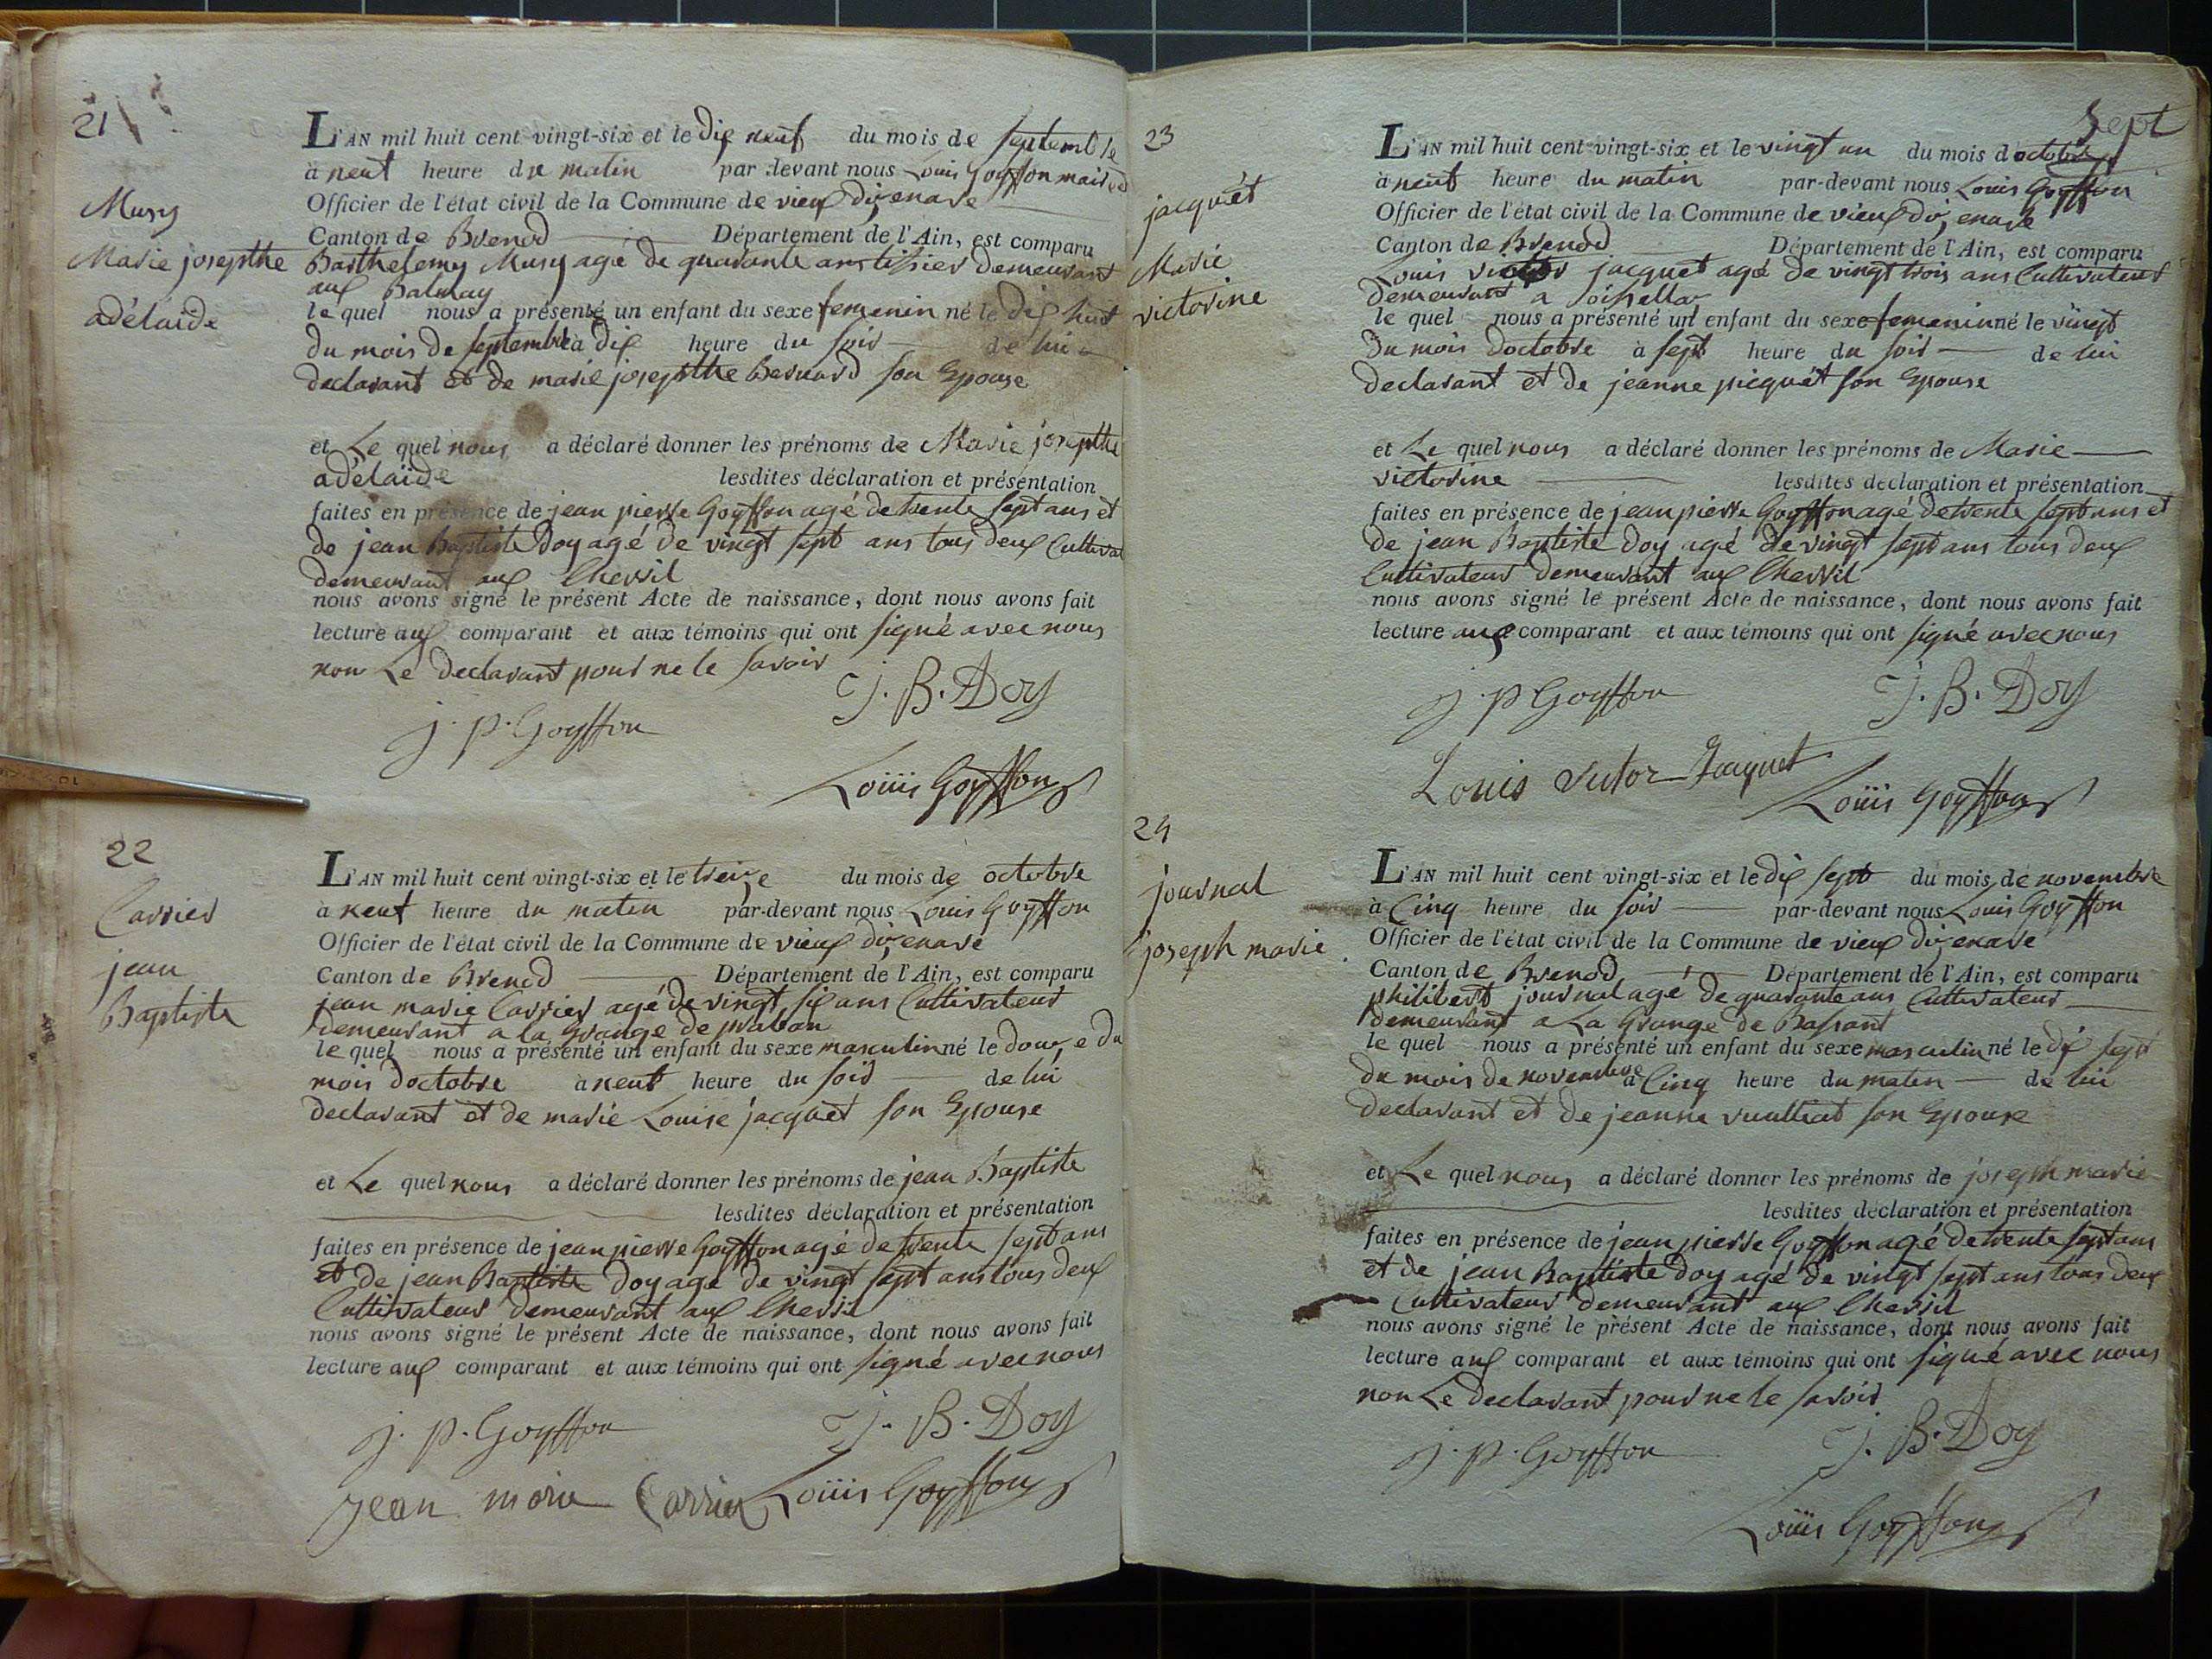 21
Musy
Marie josepthe
adélaide
L'AN mil huit cent vingt-six et le dix neuf du mois de septembre
à neuf heure du matin par devant nous Louis Goyffon maire
Officier de l'état civil de la Commune de vieux dizenave
Canton de Brenod Département de l'Ain, est comparu
Barthelemy Musy agé de quarante ans tissier demeurant
aux Balmay
le quel nous a présenté un enfant du sexe femenin né le dix huit
du mois de septembre à dix heure du soir de lui
declarant et de marie josepthe Bernard son Epouse
et Le quel nous a déclaré donner les prénoms de Marie josepthe
adélaide lesdites déclaration et présentation
faites en présence de jean pierre Goyffon agé de trente sept ans et
de jean Baptiste Doy agé de vingt sept ans tous deux Cultivat
demeurant aux Chevril
nous avons signé le présent Acte de naissance, dont nous avons fait
lecture aux comparant et aux témoins qui ont signé avec nous
non Le declarant pour ne le savoir
J. B. Doy
j. p. Goyffon
Louis Goyffon
22
Carrier
jean
Baptiste
L'AN mil huit cent vingt-six et le treize du mois de octobre
à neuf heure du matin par-devant nous Louis Goyffon
Officier de l'état civil de la Commune de vieux dizenave
Canton de Brenod Département de l'Ain, est comparu
jean marie Carrier agé de vingt six ans Cultivateur
demeurant a la Grange de
le quel nous a présenté un enfant du sexe masculin né le douze du
mois doctobre à neuf heure du soir de lui
declarant et de marie Louise jacquet son Epouse
et Le quel nous a déclaré donner les prénoms de jean Baptiste
lesdites déclaration et présentation
faites en présence de jean pierre Goyffon agé de trente sept ans
et de jean Baptiste Doy agé de vingt sept ans tous deux
Cultivateur demeurant aux Chevril
nous avons signé le présent Acte de naissance, dont nous avons fait
lecture aux comparant et aux témoins qui ont signé avec nous
j. p. Goyffon J. B. Doy
jean marie Carrier Louis Goyffon
Sept
23
jacquet
Marie
victorine
L'AN mil huit cent vingt-six et le vingt un du mois d octobre
à neuf heure du matin par-devant nous Louis Goyffon
Officier de l'état civil de la Commune de vieux dizenave
Canton de Brenod Département de l'Ain, est comparu
Louis victor jacquet agé de vingt trois ans Cultivateur
demeurant a
le quel nous a présenté un enfant du sexe femenin né le vingt
du mois doctobre à sept heure du soir de lui
declarant et de jeanne picquet son Epouse
et Le quel nous a déclaré donner les prénoms de Marie
victorine lesdites déclaration et présentation
faites en présence de jean pierre Goyffon agé de trente sept ans et
de jean Baptiste Doy agé de vingt sept ans tous deux
Cultivateur demeurant aux Chevril
nous avons signé le présent Acte de naissance, dont nous avons fait
lecture aux comparant et aux témoins qui ont signé avec nous
j. p Goyffon J. B. Doy
Louis Victor Jacquet
Louis Goyffon
24
journal
joseph marie
L'AN mil huit cent vingt-six et le dix sept du mois de novembre
à Cinq heure du soir par-devant nous Louis Goyffon
Officier de l'état civil de la Commune de vieux dizenave
Canton de Brenod Département de l'Ain, est comparu
philibert journal agé de quarante ans Cultivateur
demeurant a La Grange de Bassant
le quel nous a présenté un enfant du sexe masculin né le dix sept
du mois de novembre à Cinq heure du matin de lui
declarant et de jeanne vuulliat son Epouse
et Le quel nous a déclaré donner les prénoms de joseph marie
lesdites déclaration et présentation
faites en présence de jean pierre Goyffon agé de trente sept ans
et de jean Baptiste Doy agé de vingt sept ans tous deux
Cultivateur demeurant aux Chevril
nous avons signé le présent Acte de naissance, dont nous avons fait
lecture aux comparant et aux témoins qui ont signé avec nous
non Le declarant pour ne le savoir
j. p. Goyffon J. B. Doy
Louis Goyffon